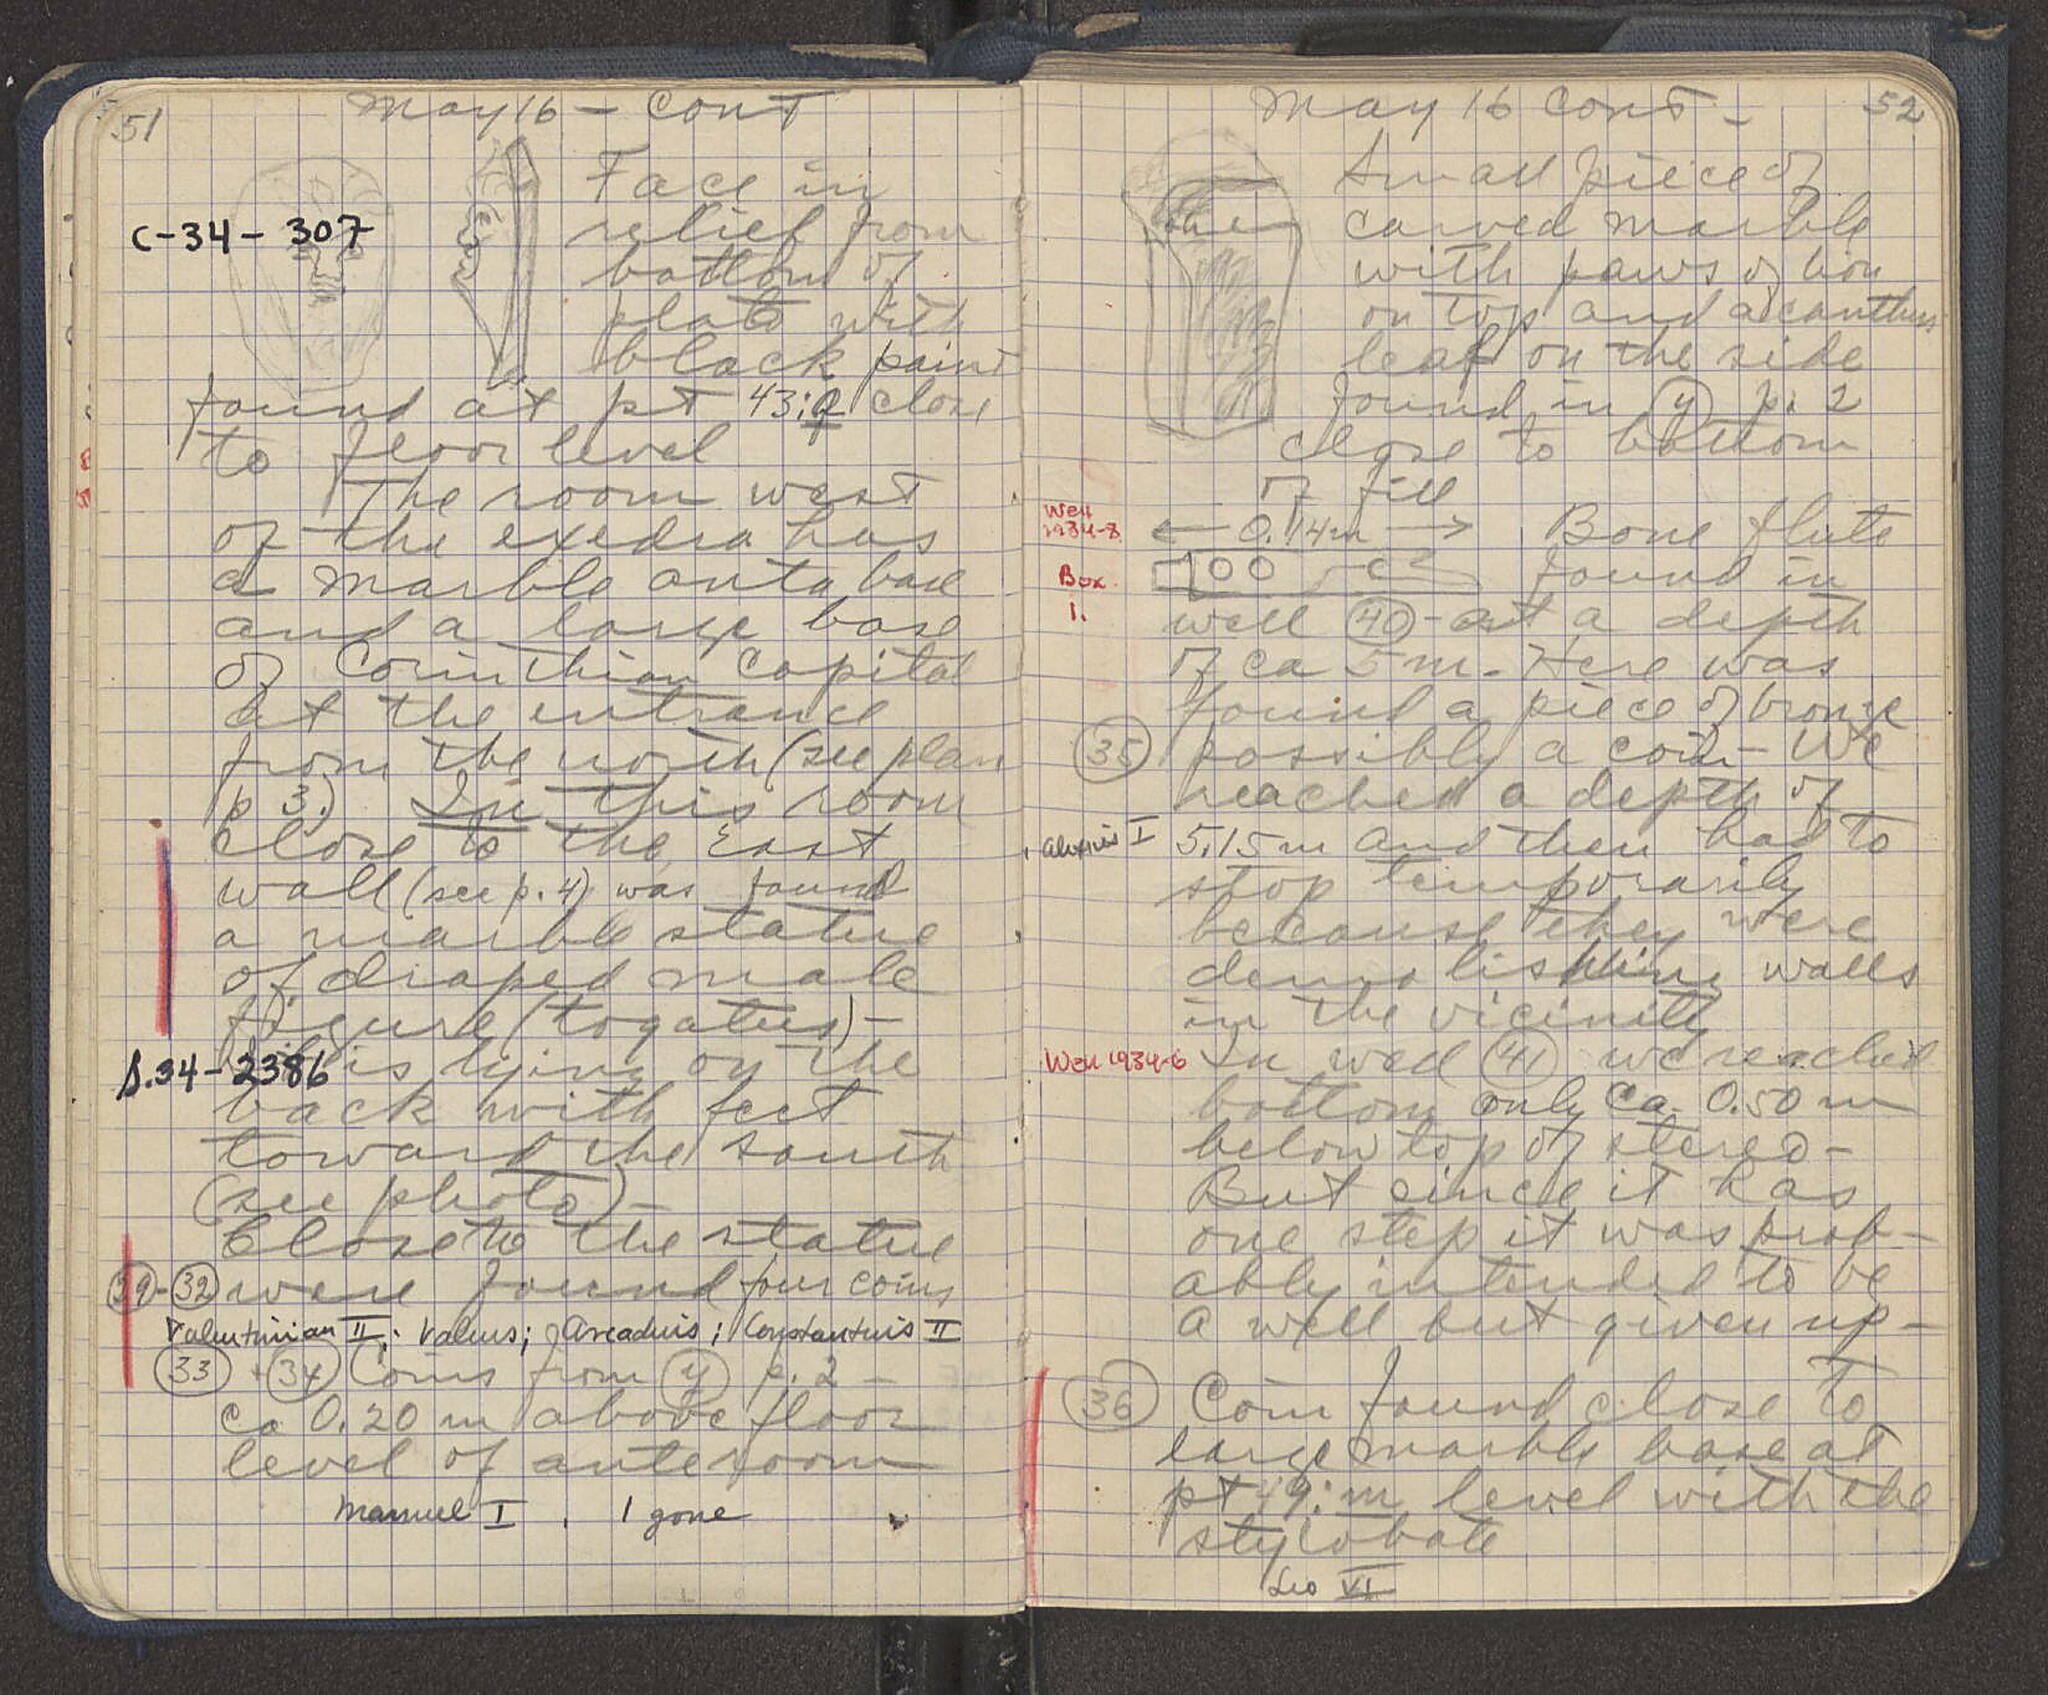 51
May 16 - Cont
C-34-307
Face in
relief from
bottom of
plate with
black paint
found at pt 43:q close
to floor level
The room west
of the exedra has
a marble anta base
and a large base
of Corinthian capital
at the entrance
from the north (see plan
p 3.) In this room
close to the East
wall (see p. 4) was found
a marble statue
of draped male
figure (togatus)-
S.34-2386
is lying on the
back with feet
toward the south
(see photo)-
Close to the statue
29-32 were found four coins
Valentinian II; Valens; Arcadius; Constantius II
33 + 34 Coins from y p. 2 -
ca 0.20 m above floor
level of anteroom
Manuel I , 1 gone
May 16 Cont - 52
Small piece of
carved marble
with paws of lion
on top and acanthus
leaf on the side
found in y p. 2
close to bottom
of fill
Well
1934-8
Box
1.
← 0.14m → Bone flute
found in
well 40 - at a depth
of ca 5 m. Here was
found a piece of bronze
35 possibly a coin - We
reached a depth of
Alexius I 5.15 m and then had to
stop temporarily
because they were
demolishing walls
in the vicinity
Well 1934-6 In well 41 we reached
bottom only ca. 0.50 m
below top of stereo-
But since it has
one step it was prob-
ably intended to be
a well but given up -
36 Coin found close to
large marble base at
pt 49:m level with the
stylobate
Leo VI